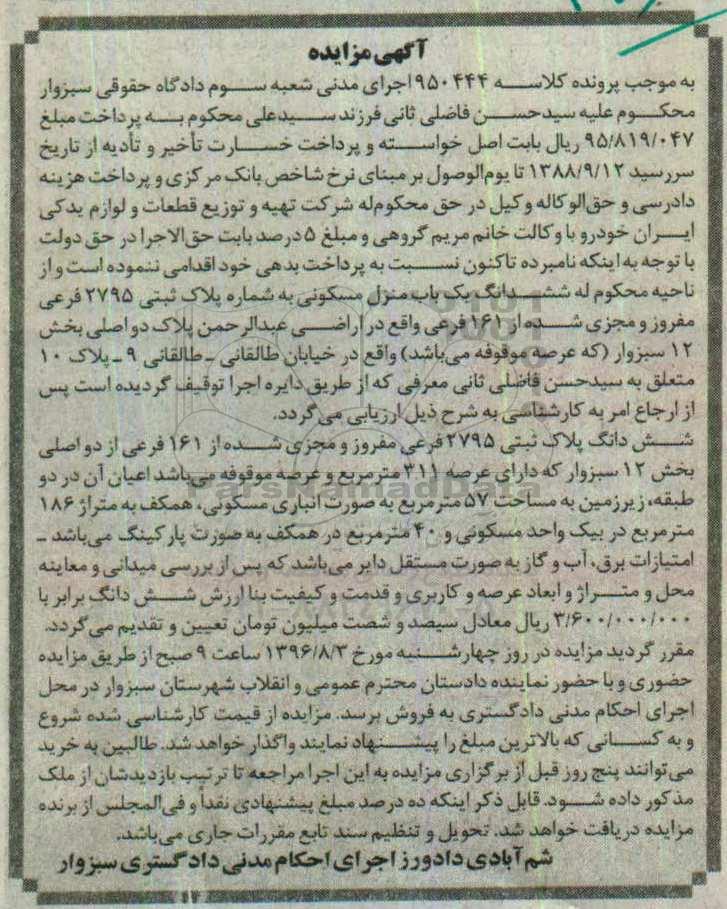 آگهی مزایده
به موجب پرونده کلاسه ۹۵۰۴۴۴ اجرای مدنی شعبه سوم دادگاه حقوقی سبزوار
محکوم علیه سیدحسن فاضلی ثانی فرزند سیدعلی محکوم به پرداخت مبلغ
۹۵/۸۱۹/۰۴۷ ریال بابت اصل خواسته و پرداخت خسارت تأخیر و تأدیه از تاریخ
سررسید ۱۳۸۸/۹/۱۲ تا یوم‌الوصول بر مبنای نرخ شاخص بانک مرکزی و پرداخت هزینه
دادرسی و حق‌الوکاله وکیل در حق محکوم‌له شرکت تهیه و توزیع قطعات و لوازم یدکی
ایران خودرو با وکالت خانم مریم گروهی و مبلغ ۵ درصد بابت حق‌الاجرا در حق دولت
با توجه به اینکه نامبرده تاکنون نسبت به پرداخت بدهی خود اقدامی ننموده است و از
ناحیه محکوم له ششدانگ یک باب منزل مسکونی به شماره پلاک ثبتی ۲۷۹۵ فرعی
مفروز و مجزی شده از ۱۶۱ فرعی واقع در اراضی عبدالرحمن پلاک دو اصلی بخش
۱۲ سبزوار (که عرصه موقوفه می‌باشد) واقع در خیابان طالقانی ـ طالقانی ۹ ـ پلاک ۱۰
متعلق به سیدحسن فاضلی ثانی معرفی که از طریق دایره اجرا توقیف گردیده است پس
از ارجاع امر به کارشناسی به شرح ذیل ارزیابی می گردد.
شش دانگ پلاک ثبتی ۲۷۹۵ فرعی مفروز و مجزی شده از ۱۶۱ فرعی از دو اصلی
بخش ۱۲ سبزوار که دارای عرصه ۳۱۱ مترمربع و عرصه موقوفه می‌باشد اعیان آن در دو
طبقه، زیرزمین به مساحت ۵۷ مترمربع به صورت انباری مسکونی، همکف به متراژ ۱۸۶
مترمربع در بیک واحد مسکونی و ۴۰ مترمربع در همکف به صورت پارکینگ می‌باشد ـ
امتیازات برق، آب و گاز به صورت مستقل دایر می‌باشد که پس از بررسی میدانی و معاینه
محل و متراژ و ابعاد عرصه و کاربری و قدمت و کیفیت بنا ارزش شش دانگ برابر با
۳/۶۰۰/۰۰۰/۰۰۰ ریال معادل سیصد و شصت میلیون تومان تعیین و تقدیم می گردد.
مقرر گردید مزایده در روز چهارشنبه مورخ ۱۳۹۶/۸/۳ ساعت ۹ صبح از طریق مزایده
حضوری و با حضور نماینده دادستان محترم عمومی و انقلاب شهرستان سبزوار در محل
اجرای احکام مدنی دادگستری به فروش برسد. مزایده از قیمت کارشناسی شده شروع
و به کسانی که بالاترین مبلغ را پیشنهاد نمایند واگذار خواهد شد. طالبین به خرید
می‌توانند پنج روز قبل از برگزاری مزایده به این اجرا مراجعه تا ترتیب بازدیدشان از ملک
مذکور داده شود. قابل ذکر اینکه ده درصد مبلغ پیشنهادی نقداً و فی‌المجلس از برنده
مزایده دریافت خواهد شد. تحویل و تنظیم سند تابع مقررات جاری می‌باشد.
شم آبادی دادورز اجرای احکام مدنی دادگستری سبزوار
ParsNamadData